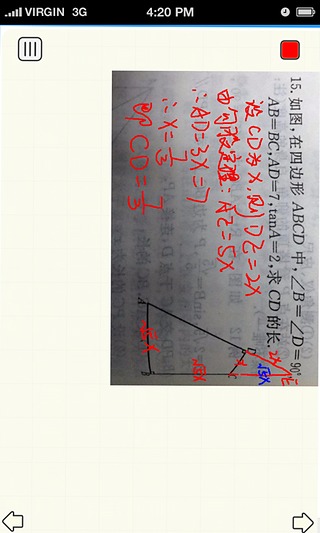 VIRGIN 3G 4:20 PM
15. 如图,在四边形 ABCD 中,∠B=∠D=90°
AB=BC,AD=7,tanA=2,求 CD 的长.
设 CD为 x,则 DE=2X
由勾股定理: AE=5X
∴AD=3X=7
∴X=7/3
即 CD=7/3
A
B
C
D
E
2X
√5X
√5X
√5X
X